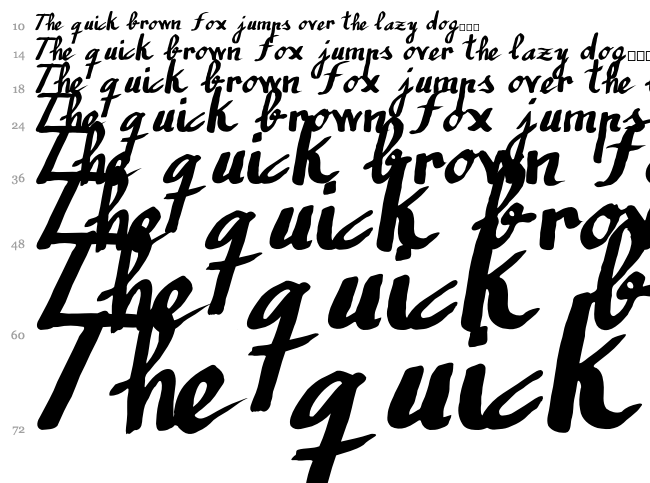 10 The quick brown fox jumps over the lazy dog□□□
14 The quick brown fox jumps over the lazy dog□□□
18 The quick brown fox jumps over the
24 The quick brown fox jumps
36 The quick brown fo
48 The quick brow
60 The quick b
72 The quick